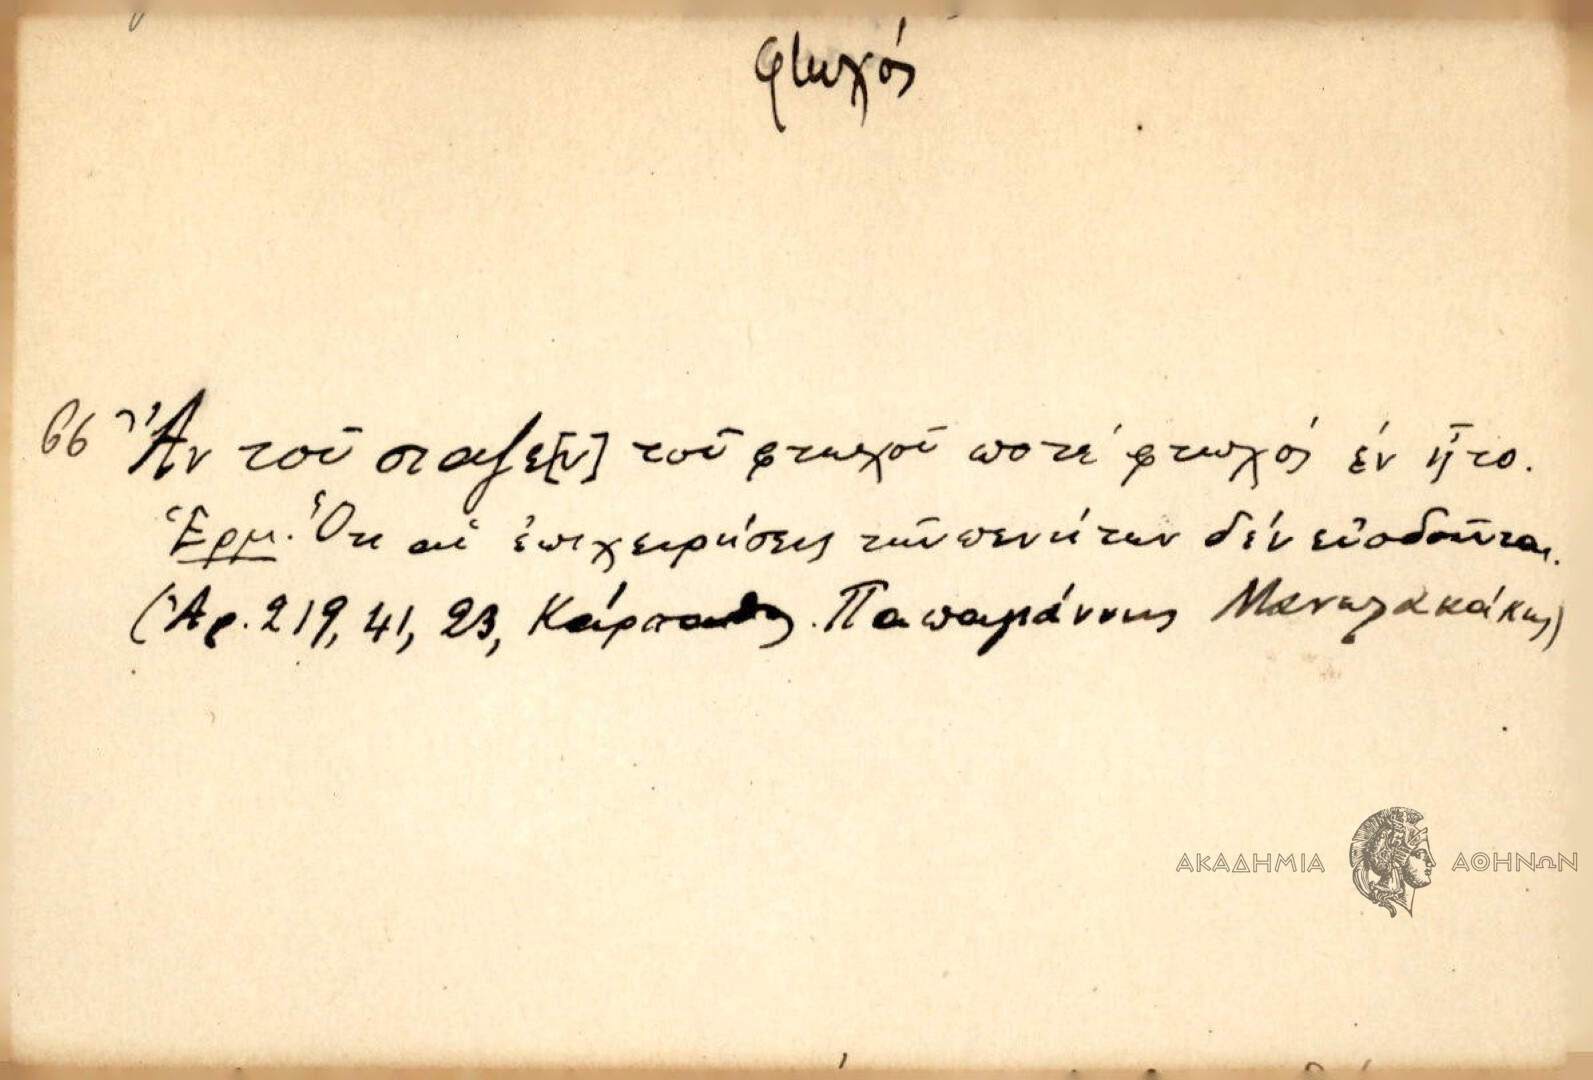 φτωχός
66 Ἂν τοῦ σιαζε[ν] τοῦ φτωχοῦ ποτέ φτωχός ἐν ἦτο.
Ἑρμ. Ὅτι αἱ ἐπιχειρήσεις τῶν πενήτων δέν εὐοδοῦνται.
(Ἀρ. 219, 41, 23, Κάρπαθος. Παπαγιάννης Μανωλακάκης)
ΑΚΑΔΗΜΙΑ ΑΘΗΝΩΝ